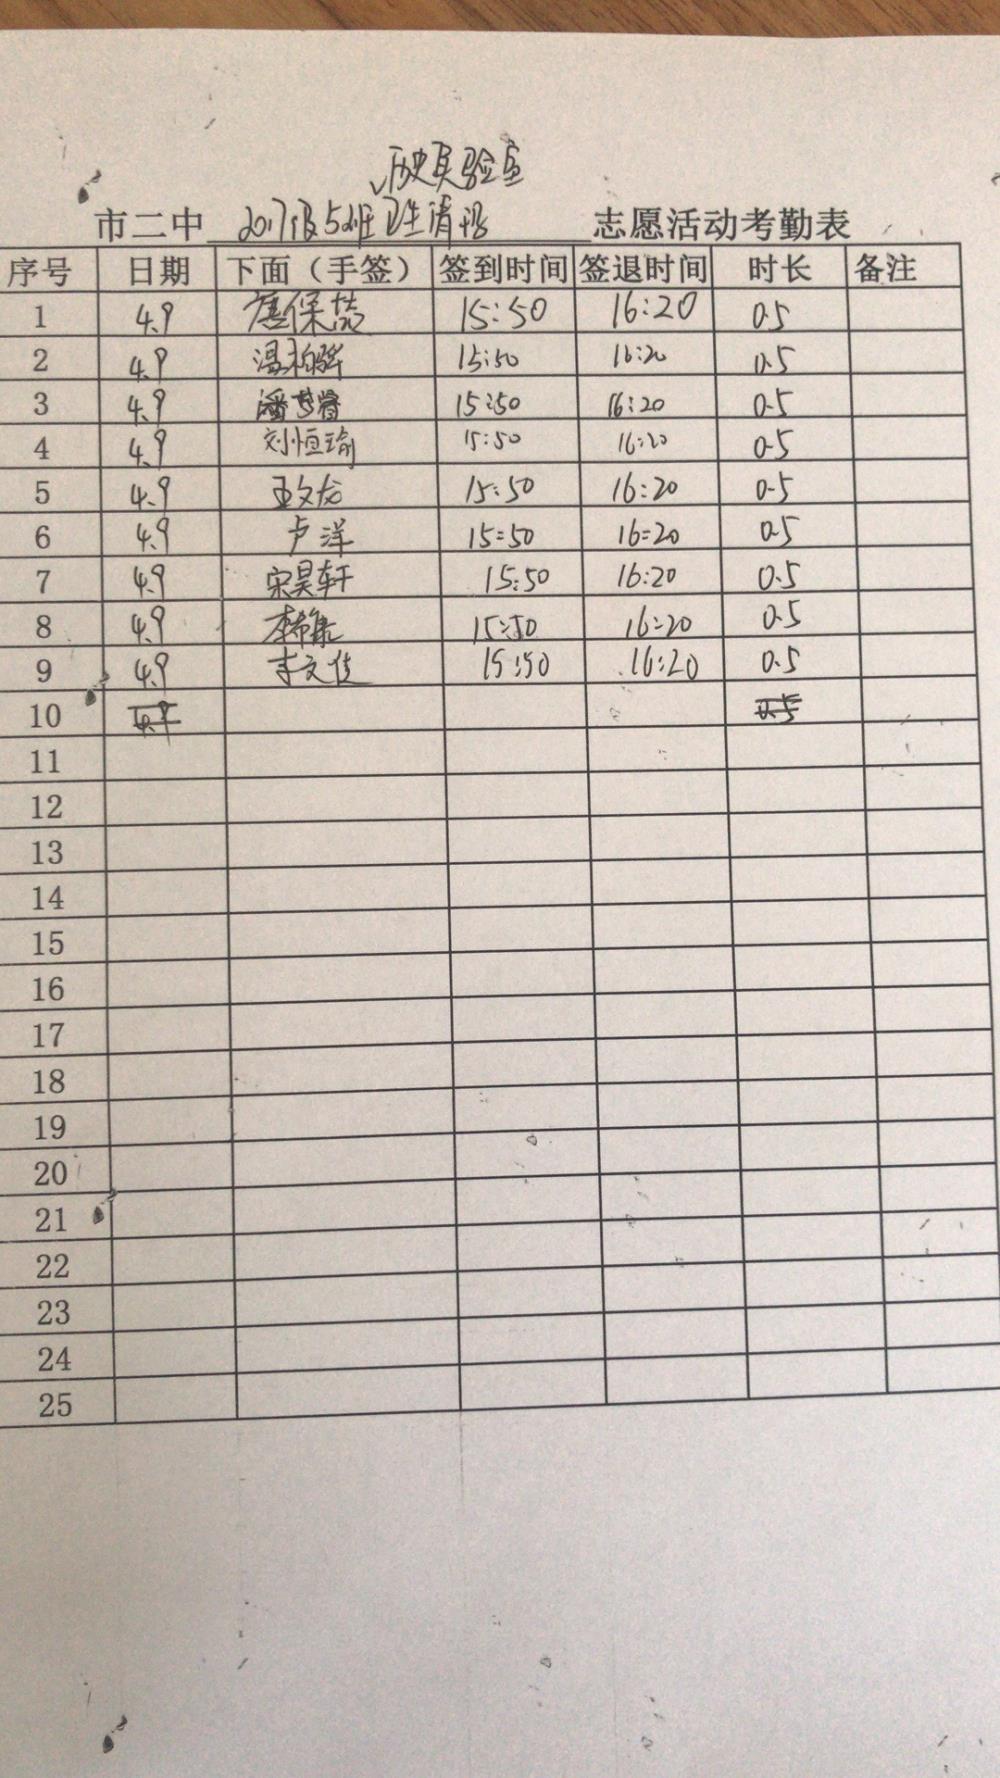 历史实验室
市二中 2017级5班卫生清扫 志愿活动考勤表
序号 日期 下面（手签） 签到时间 签退时间 时长 备注
1 4.9 唐保喆 15:50 16:20 0.5
2 4.9 温柏骅 15:50 16:20 0.5
3 4.9 潘梦睿 15:50 16:20 0.5
4 4.9 刘恒瑜 15:50 16:20 0.5
5 4.9 王文龙 15:50 16:20 0.5
6 4.9 卢洋 15:50 16:20 0.5
7 4.9 宋昊轩 15:50 16:20 0.5
8 4.9 15:50 16:20 0.5
9 4.9 李文佳 15:50 16:20 0.5
10 4.9 0.5
11
12
13
14
15
16
17
18
19
20
21
22
23
24
25